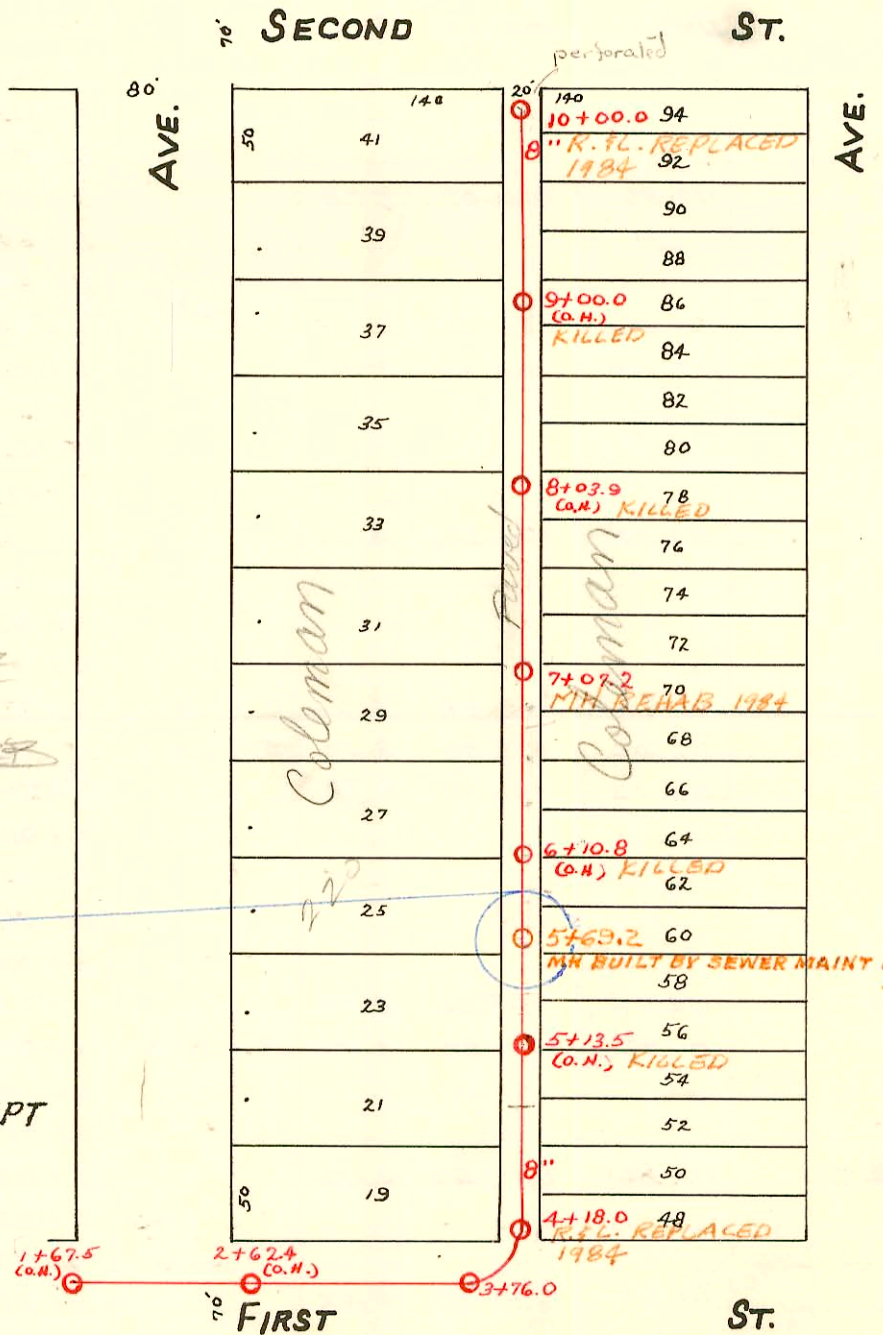 70' SECOND ST.
perforated
80'
AVE.
AVE.
140
20'
140
50
41
39
37
35
33
31
29
27
25
23
21
19
50
Coleman
220
Paved
Coleman
8"
10+00.0 94
R.&L. REPLACED
1984 92
90
88
9+00.0 86
(O.H.)
KILLED
84
82
80
8+03.9 78
(O.H.) KILLED
76
74
72
7+07.2 70
MH REHAB 1984
68
66
6+10.8 64
(O.H.) KILLED
62
5+69.2 60
MH BUILT BY SEWER MAINT
58
5+13.5 56
(O.H.) KILLED
54
52
8" 50
4+18.0 48
R.&L. REPLACED
1984
PT
1+67.5
(O.H.)
2+62.4
(O.H.)
3+76.0
70' FIRST ST.